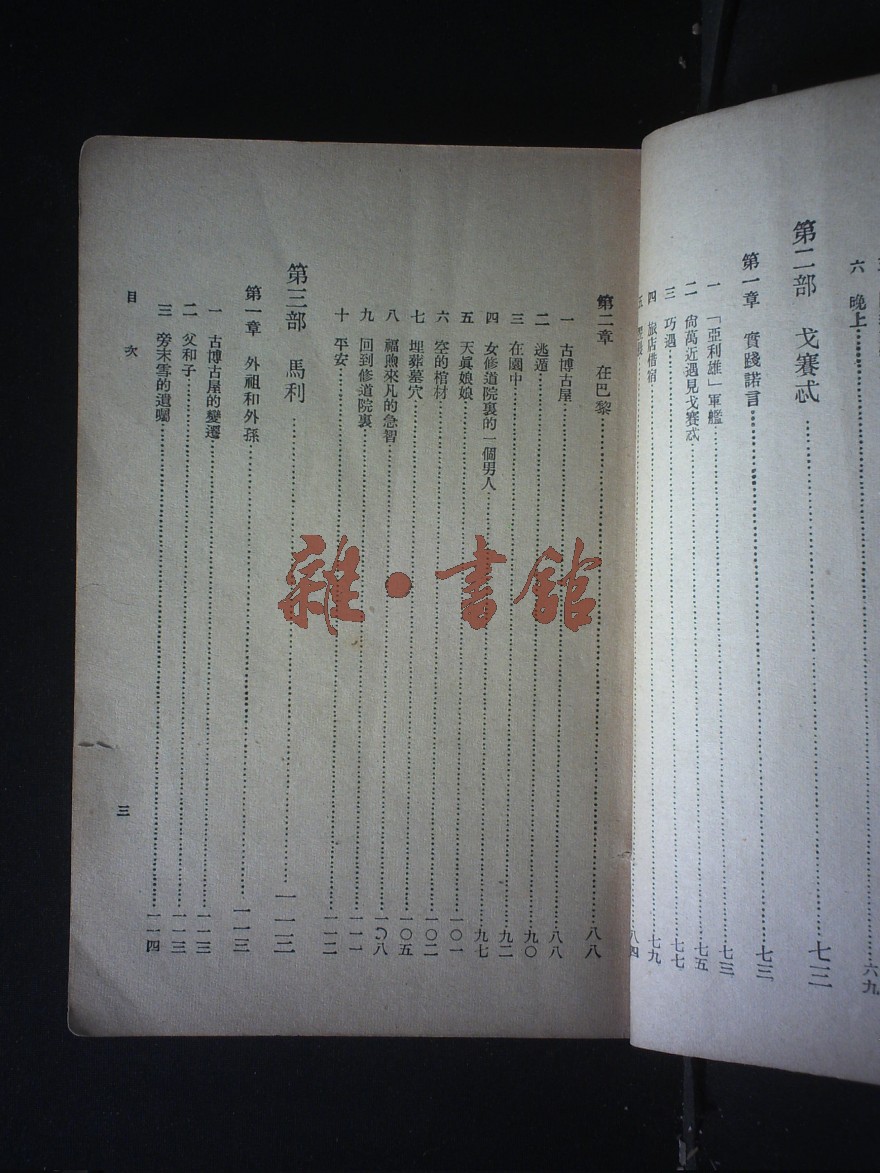 六 晚上……六九
第二部 戈賽忒……七三
第一章 實踐諾言……七三
一 「亞利雄」軍艦……七三
二 尙萬近遇見戈賽忒……七五
三 巧遇……七七
四 旅店借宿……七九
八四
第二章 在巴黎……八八
一 古博古屋……八八
二 逃遁……九〇
三 在園中……九二
四 女修道院裏的一個男人……九七
五 天眞娘娘……一〇一
六 空的棺材……一〇二
七 埋葬墓穴……一〇五
八 福煦來凡的急智……一〇八
九 回到修道院裏……一一一
十 平安……一一二
第三部 馬利……一一三
第一章 外祖和外孫……一一三
一 古博古屋的變遷……一一三
二 父和子……一一三
三 旁末雪的遺囑……一一四
目次
三
雜·書館